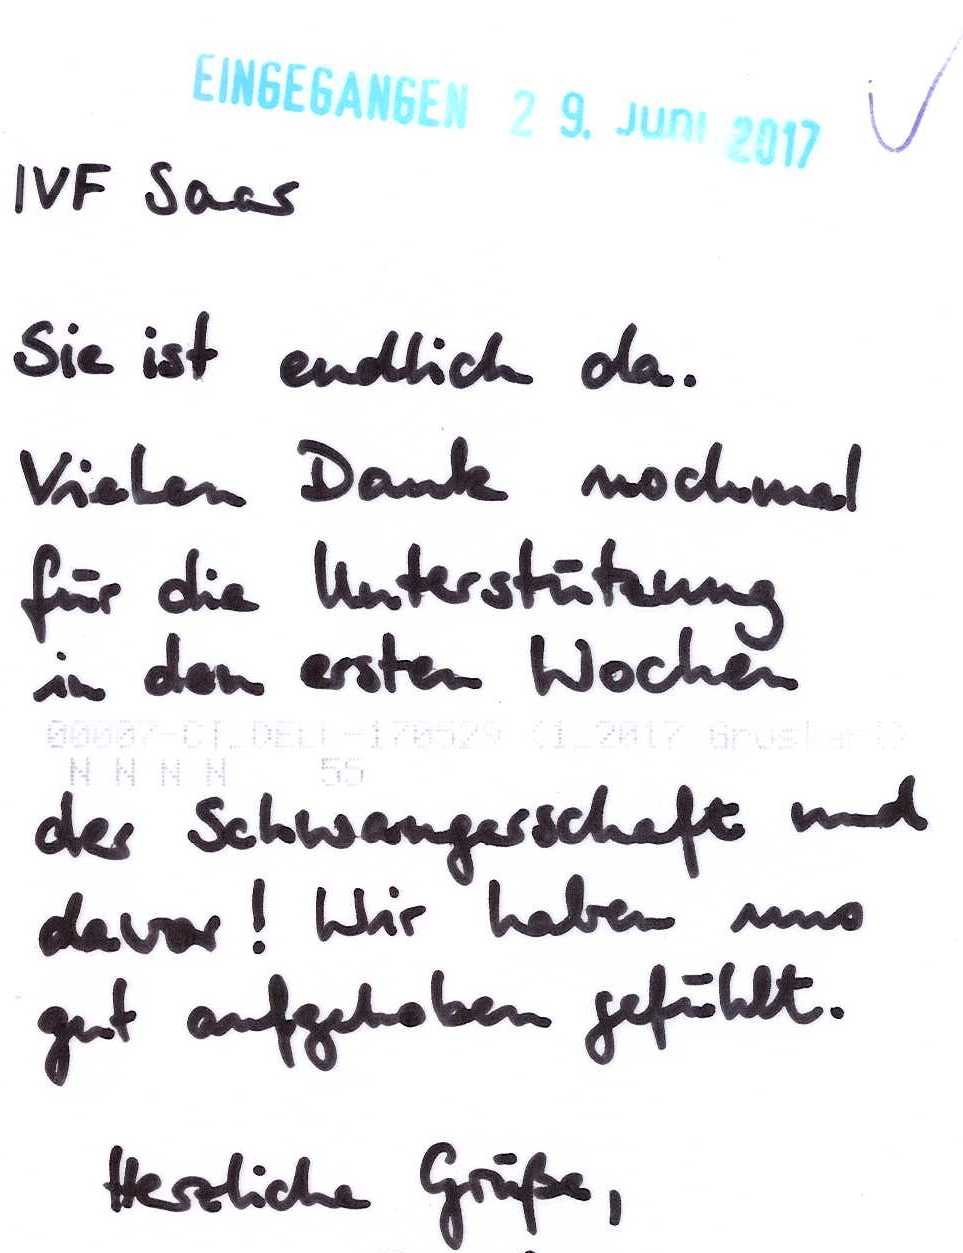 EINGEGANGEN 29. Juni 2017
IVF Saas
Sie ist endlich da.
Vielen Dank nochmal
für die Unterstützung
in den ersten Wochen
00007-CT_DELL-170529
N N N N 56
der Schwangerschaft und
davor! Wir haben uns
gut aufgehoben gefühlt.
Herzliche Grüße,